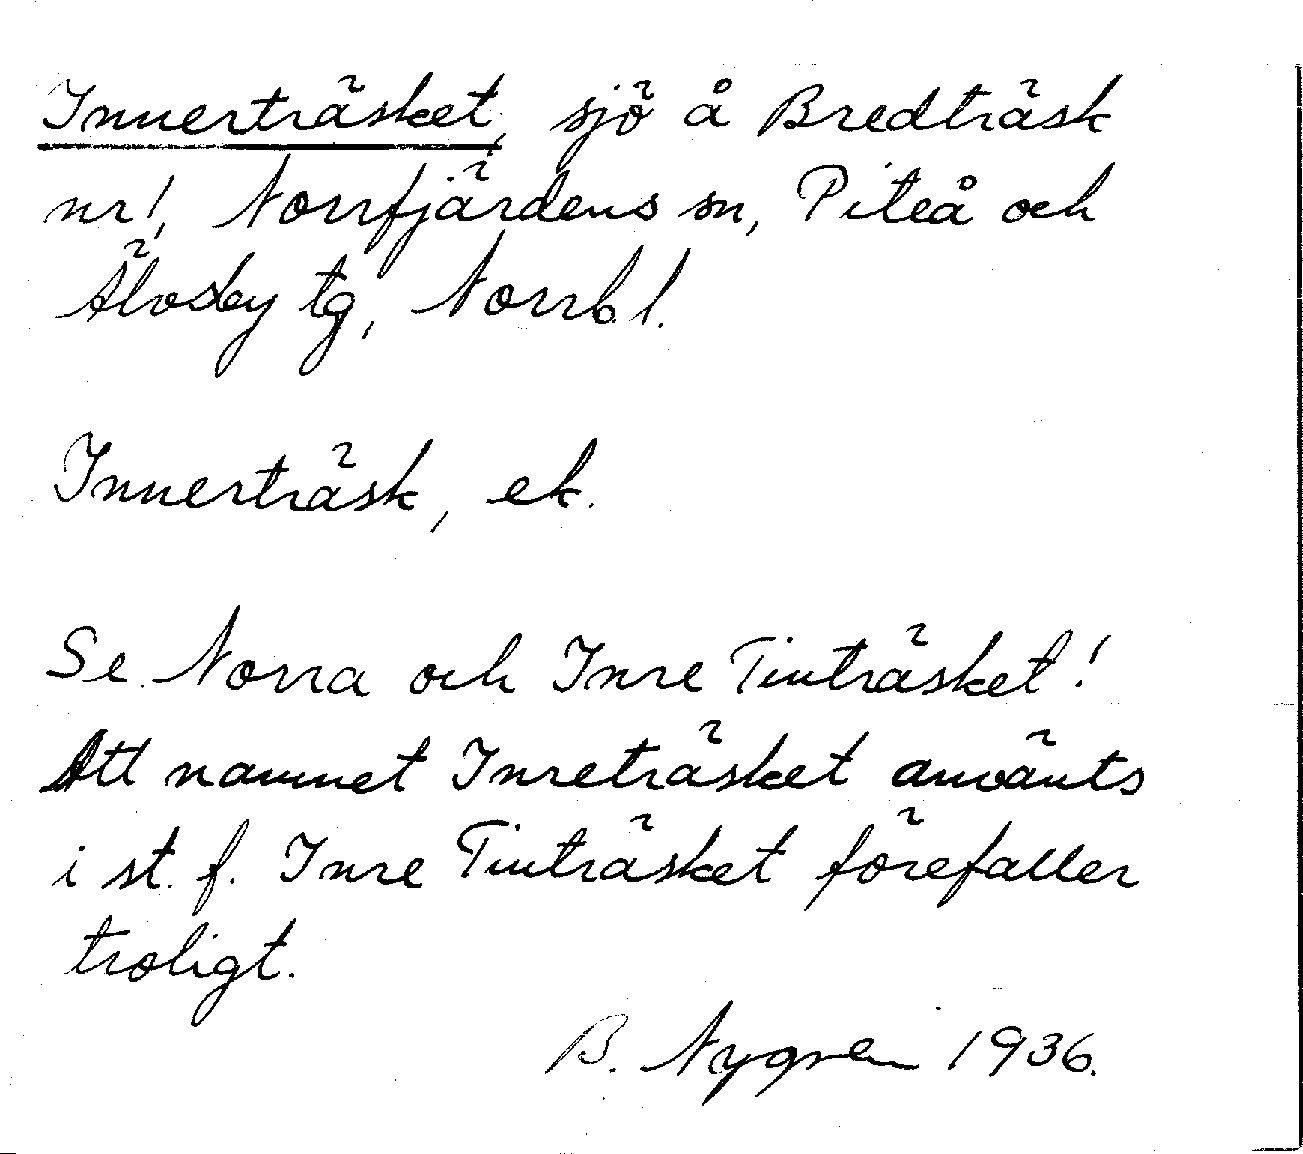 Innerträsket, sjö å Bredträsk
nr 1, Norrfjärdens sn, Piteå och
Älvsby tg, Norrb. l.
Innerträsk, ek.
Se Norra och Inre Tinträsket!
Att namnet Inreträsket använts
i st. f. Inre Tinträsket förefaller
troligt.
B. Nygren 1936.